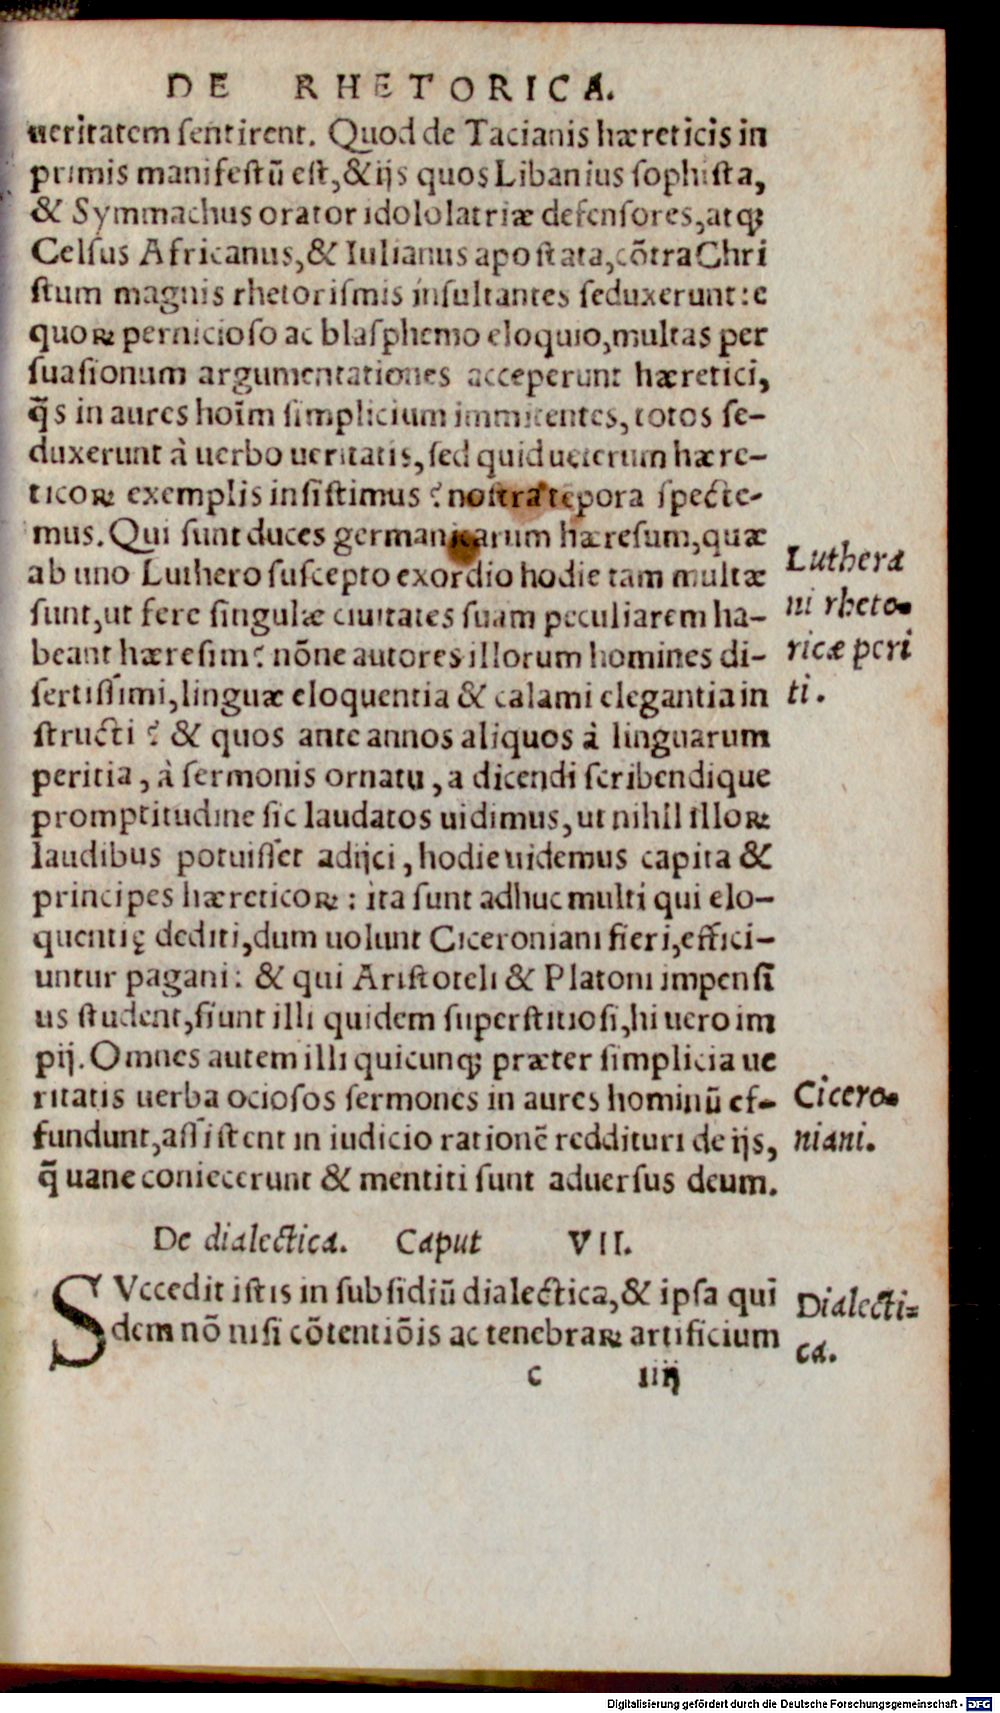 DE RHETORICA.
ueritatem sentirent. Quod de Tacianis hæreticis in
primis manifestũ est, & ijs quos Libanius sophista,
& Symmachus orator idololatriæ defensores, atqꝫ
Celsus Africanus, & Iulianus apostata, cõtra Chri
stum magnis rhetorismis insultantes seduxerunt: e
quoꝝ pernicioso ac blasphemo eloquio, multas per
suasionum argumentationes acceperunt hæretici,
q̃s in aures hoĩm simplicium immitentes, totos se-
duxerunt à uerbo ueritatis, sed quid ueterum hære-
ticoꝝ exemplis insistimus? nostra tẽpora specte-
mus. Qui sunt duces germanicarum hæresum, quæ
ab uno Luthero suscepto exordio hodie tam multæ
sunt, ut fere singulæ ciuitates suam peculiarem ha-
beant hæresim? nõne autores illorum homines di-
sertissimi, linguæ eloquentia & calami elegantia in
structi? & quos ante annos aliquos à linguarum
peritia, à sermonis ornatu, a dicendi scribendique
promptitudine sic laudatos uidimus, ut nihil illoꝝ
laudibus potuisset adijci, hodie uidemus capita &
principes hæreticoꝝ: ita sunt adhuc multi qui elo-
quentię dediti, dum uolunt Ciceroniani fieri, effici-
untur pagani: & qui Aristoteli & Platoni impensi
us student, fiunt illi quidem superstitiosi, hi uero im
pij. Omnes autem illi quicunqꝫ præter simplicia ue
ritatis uerba ociosos sermones in aures hominũ ef-
fundunt, assistent in iudicio rationẽ reddituri de ijs,
q̃ uane coniecerunt & mentiti sunt aduersus deum.
Luthera
ni rheto-
ricæ peri
ti.
Cicero-
niani.
De dialectica. Caput VII.
SVccedit istis in subsidiũ dialectica, & ipsa qui
dem nõ nisi cõtentiõis ac tenebraꝝ artificium
Dialecti=
ca.
c iiij
Digitalisierung gefördert durch die Deutsche Forschungsgemeinschaft - DFG